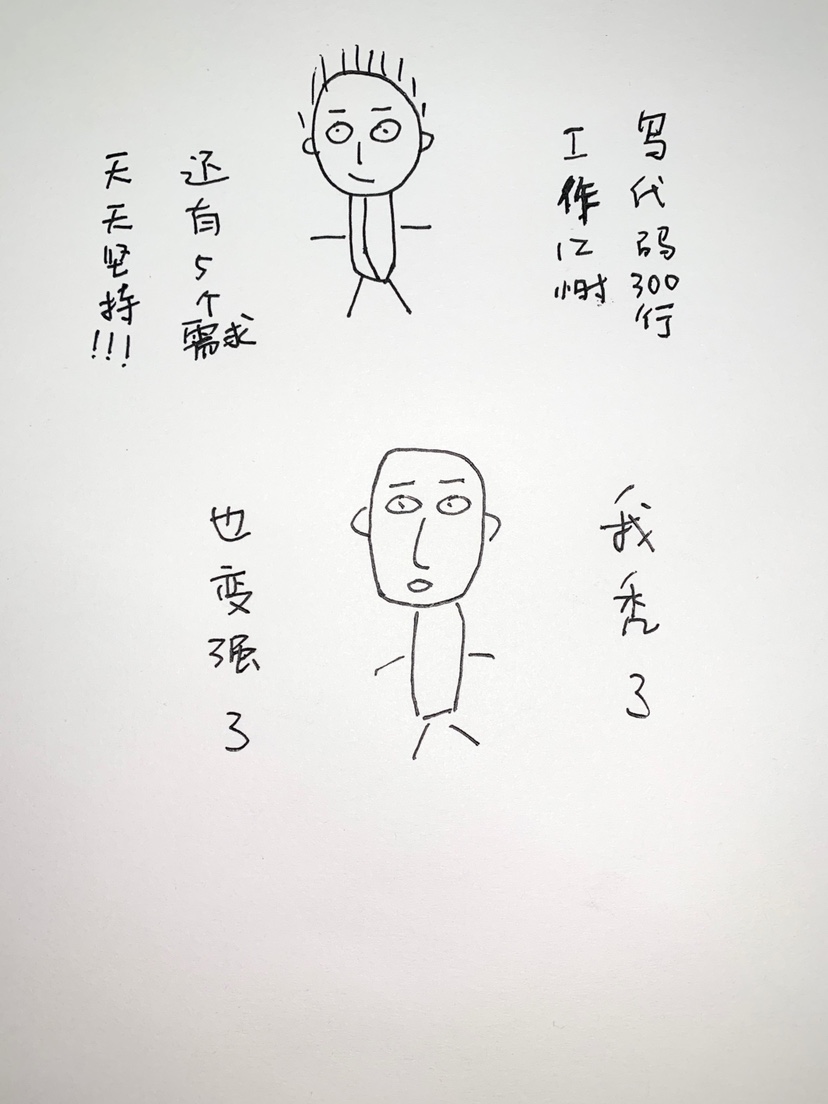 写代码300行
工作12小时
还有5个需求
天天坚持!!!
我秃了
也变强了